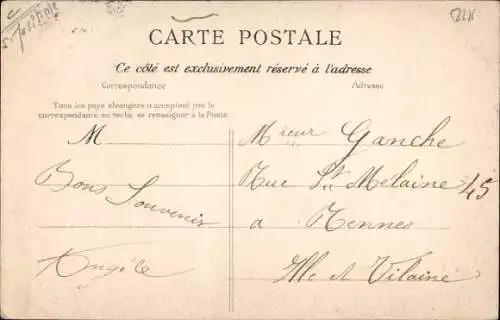 CARTE POSTALE
Ce côté est exclusivement réservé à l'adresse
Correspondance
Adresse
Tous les pays étrangers n'acceptent pas la
correspondance au recto, se renseigner à la Poste.
M
Bons Souvenir
Angèle
Mieur Ganche
Rue St Melaine 45
a Rennes
Ille et Vilaine